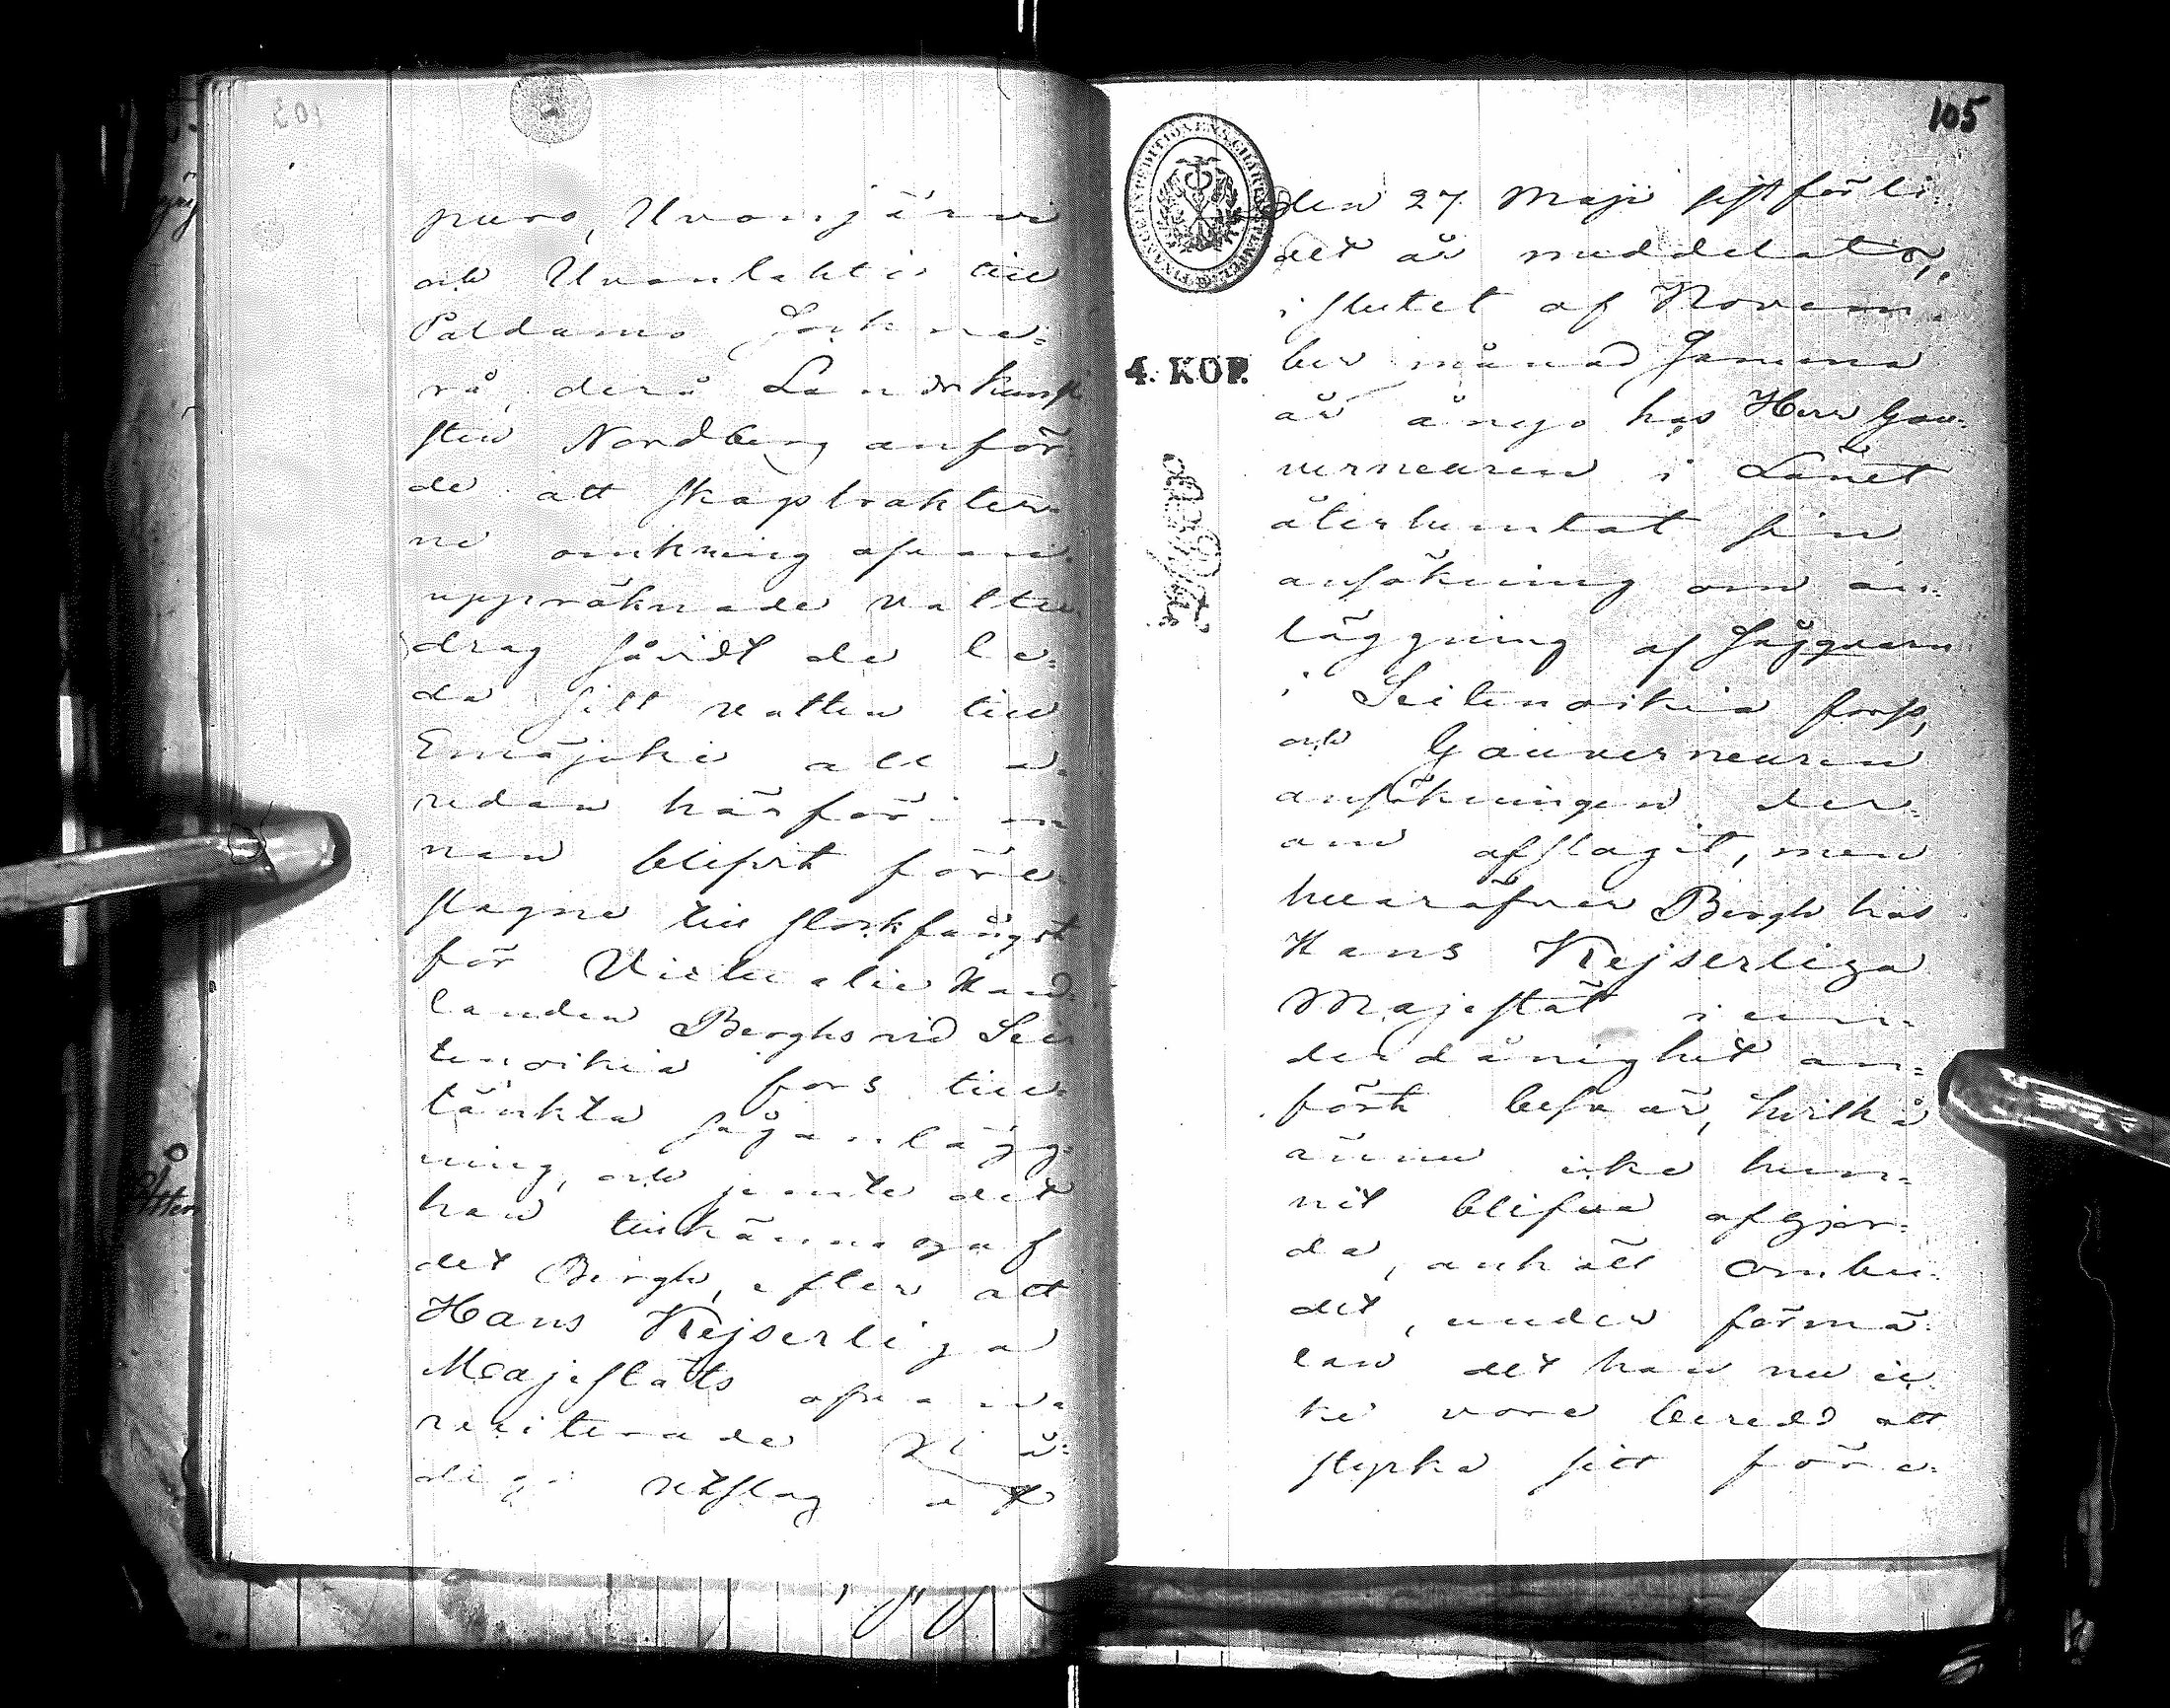 puro, Uvanjärvi
och Uvanlahti till
Paldamo Sockne=
rå, derå Landtkamre
sten Nordberg anför=
de att skogstrakter=
ne omkring ofvan
uppräknade vatten
drag såvidt de le=
da sitt vatten till
Emäjoki alle=
redan härför in
nan blifvit före
slagne till stockfångst
för Victualie Hand
landen Berghs vid Sei
tenoikia fors till=
tänkta såganlägg=
ning, och jemte det
han tillkännagaf
det Bergh, efter att
Hans Kejserliga
Majestäts ofvan
reciterade Nå=
diga utslag af
105
den 27 Maji sistförli=
det år meddelats,
i slutet af Novem=
ber månad samma
år ånyo hos Herr Gou=
verneuren i Länet
återhemtat sin
ansökning om an=
läggning af Sågqvarn
i Seitenoikia fors,
och Gouverneuren
ansökningen der=
om afslagit, men
hvaröfver Bergh hos
Hans Kejserliga
Majestät i un=
derdånighet an=
fört besvär, hvilka
ännu icke hun=
nit blifva afgjor=
da, anhöll ombu=
det, under förmä=
lan det han nu ic
ke vore beredd att
styrka sitt före=
4. KOP.
FINANCE EXPEDITIONENS CHARTÆ STEMPEL